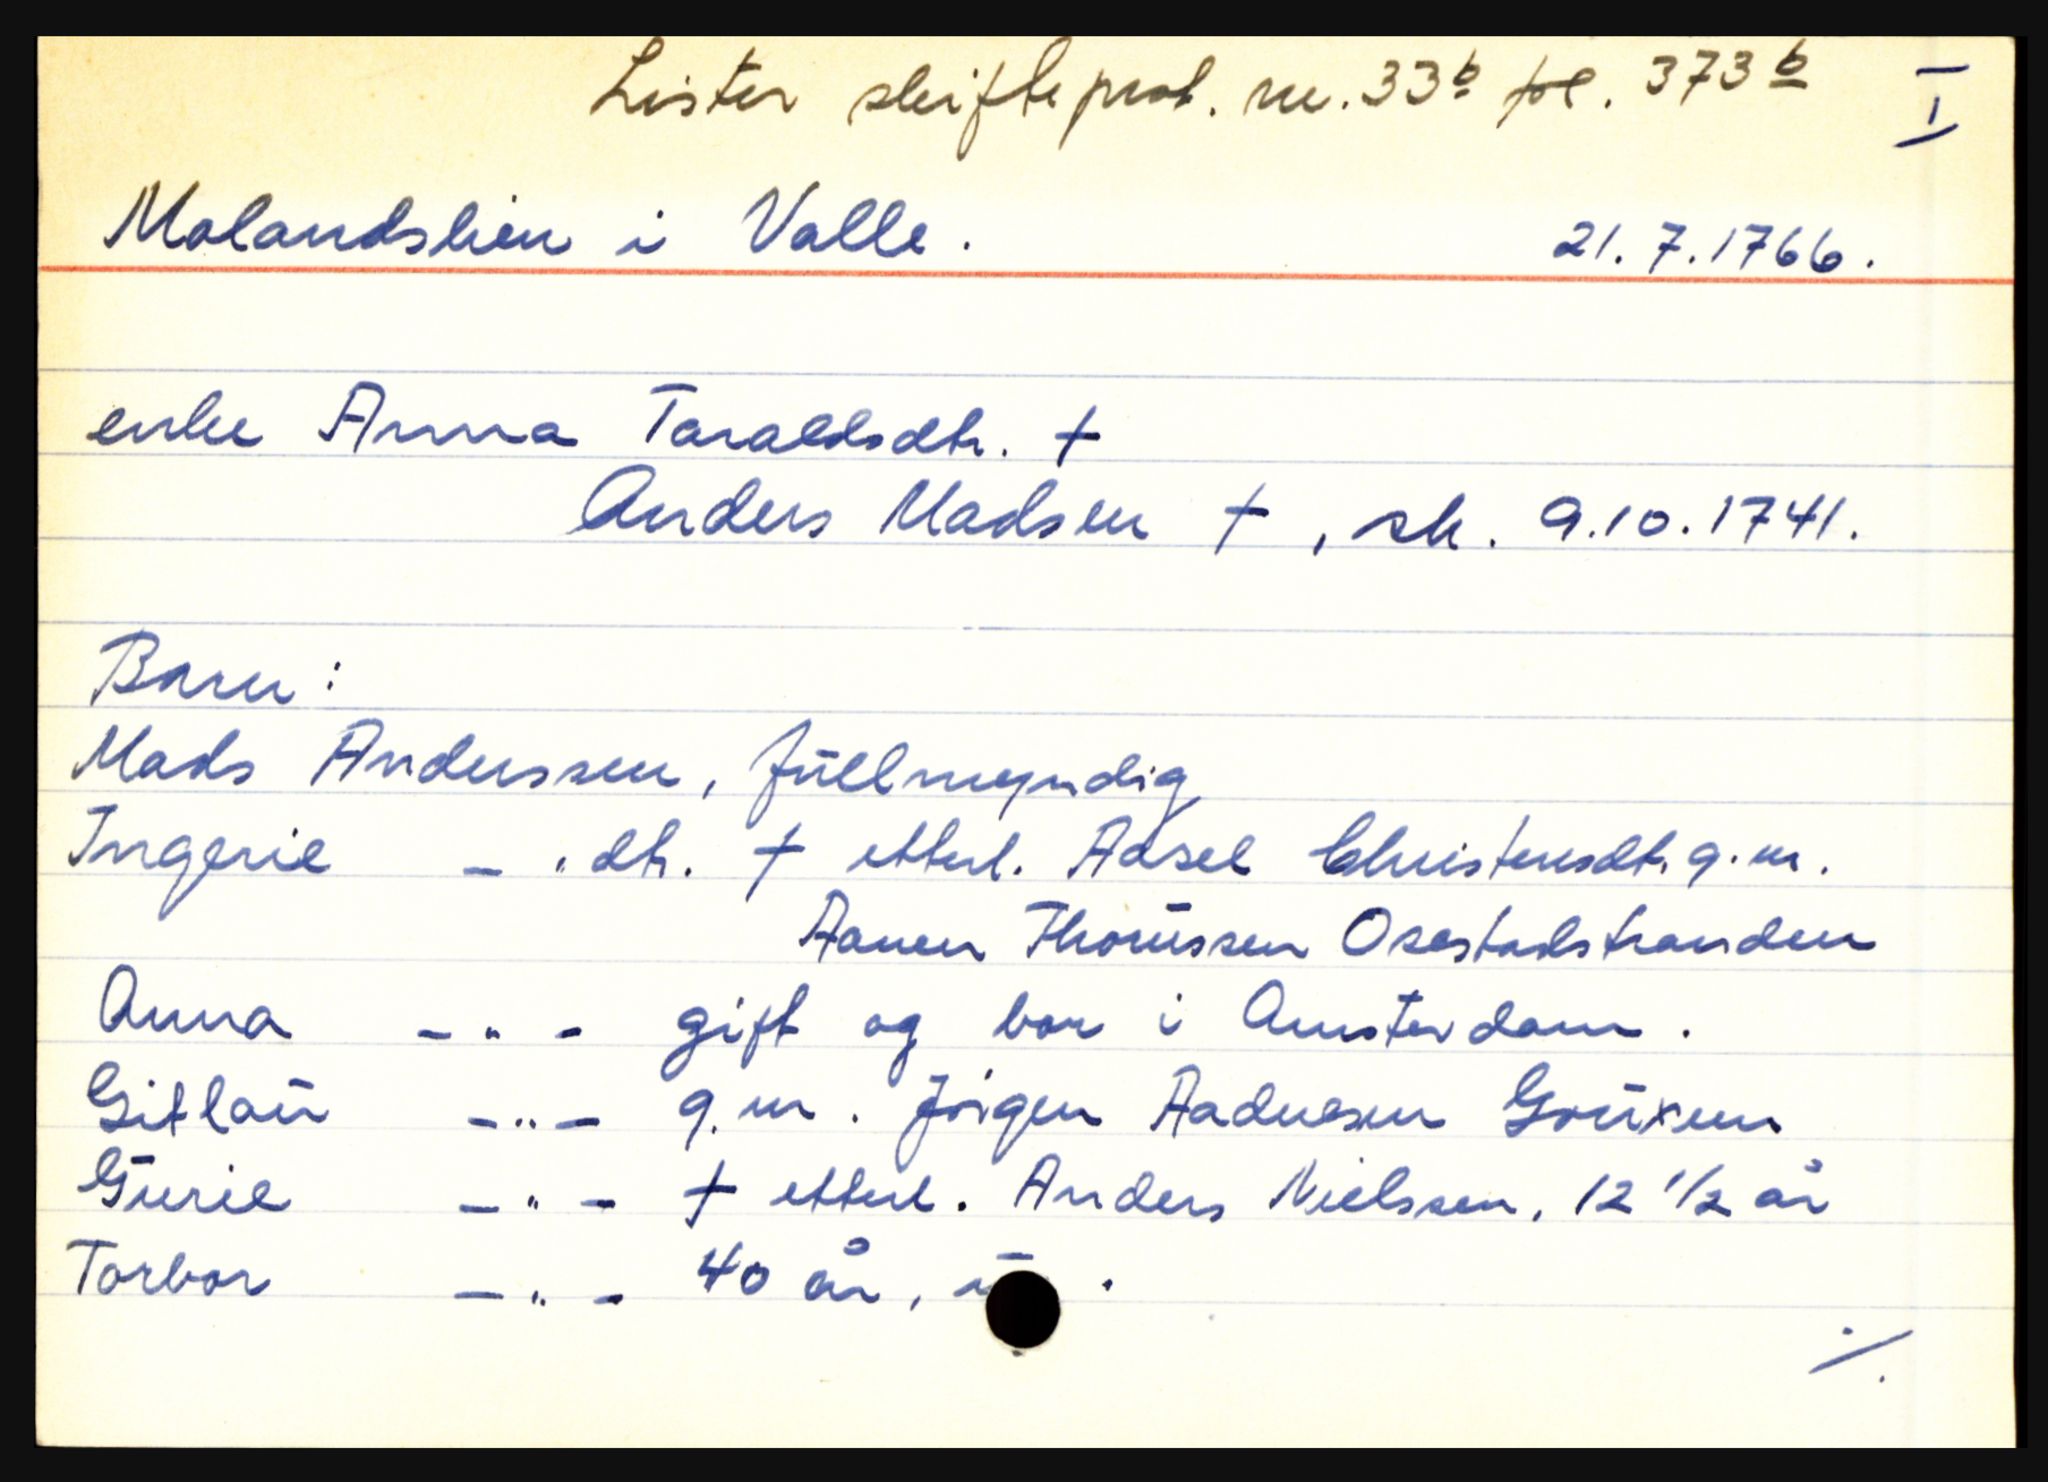 Lister skifteprot. nr. 33b fol. 373b I
Molandslien i Valle. 21.7.1766.
enke Anna Taraldsdtr. †
Anders Madsen †, sk. 9.10.1741.
Barn:
Mads Anderssen, fullmyndig
Ingerie — " dtr. † etterl. Adsel Christensdtr. g.m.
Aanen Thorussen Osestadstranden
Anna — " — gift og bor i Amsterdam.
Gitlau — " — g.m. Jörgen Aadnesen
Gurie — " — † etterl. Anders Nielssen, 12 1/2 år
Torbor — " — 40 år, .
./.